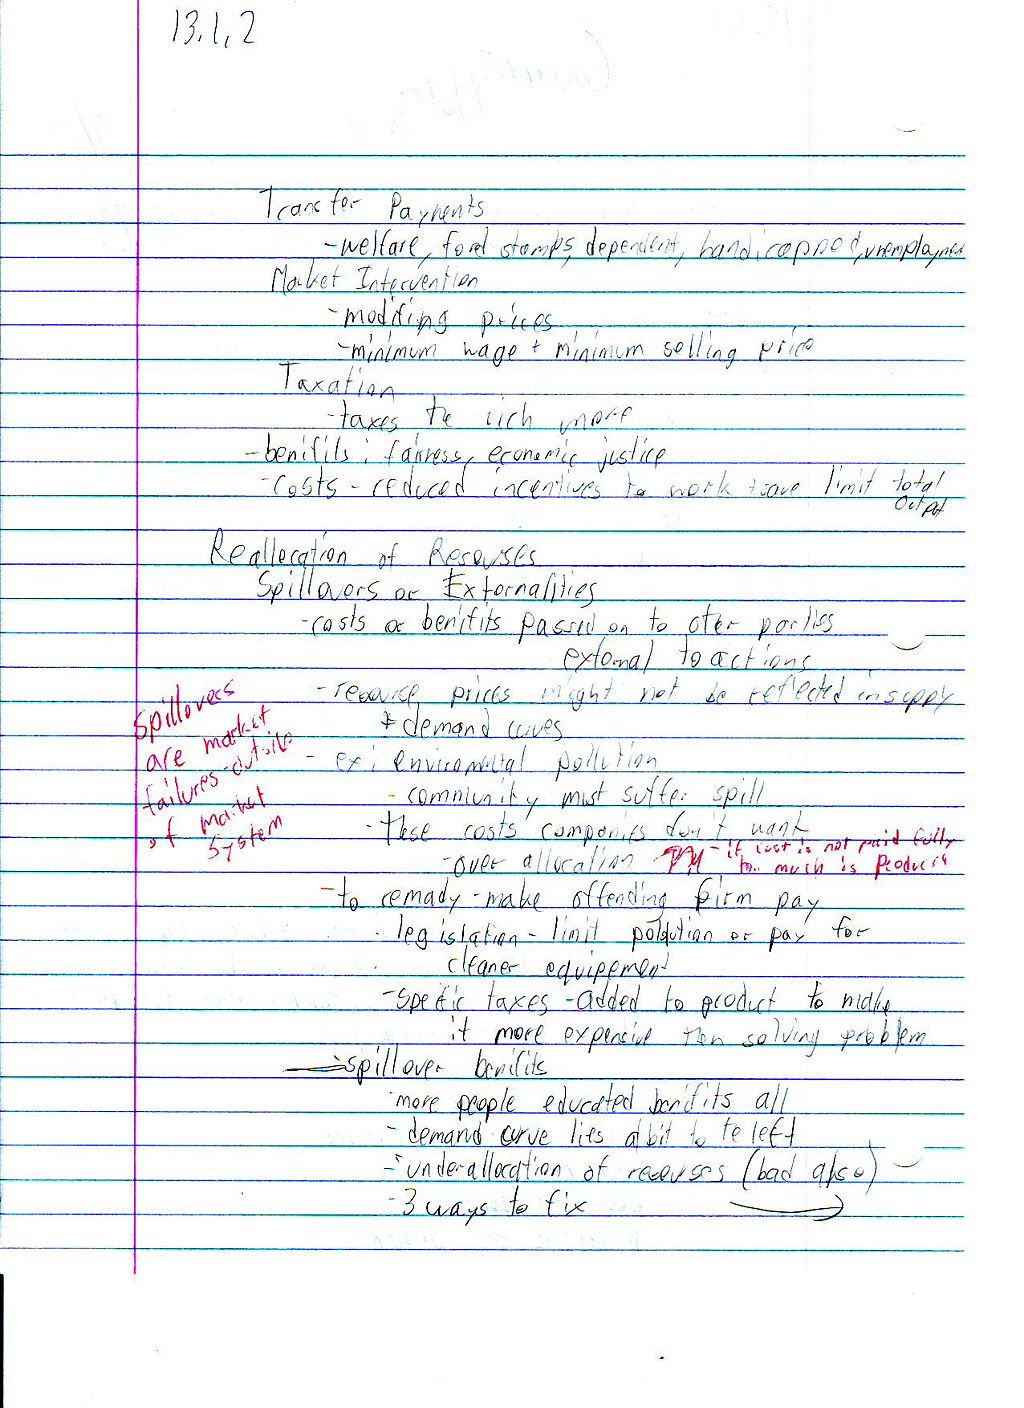 13.1.2
Transfer Payments
-welfare, food stamps, dependent, handicapped, unemploymen
Market Intervention
-modifing prices
-minimum wage + minimum selling price
Taxation
-taxes the rich more
-benifits: fairness, economic justice
-costs - reduced incentives to work + save limit total
output
Reallocation of Resourses
Spillovers or Externalities
-costs or benifits passed on to oter parties
external to actions
-resourse prices might not be reflected in supply
& demand cuves
- ex: enviromental pollution
- community must suffer spill
-these costs companies don't want
-over allocation - if cost is not paid fully
to much is produced
Spillovers
are market
failures-outside
of market
system
-to remady - make offending firm pay
-legislation - limit polution or pay for
cleaner equipement
-specfic taxes - added to product to make
it more expensive then solving problem
spillover benifits
-more people educated benifits all
- demand curve lies a bit to te left
-underallocation of resourses (bad also)
-3 ways to fix